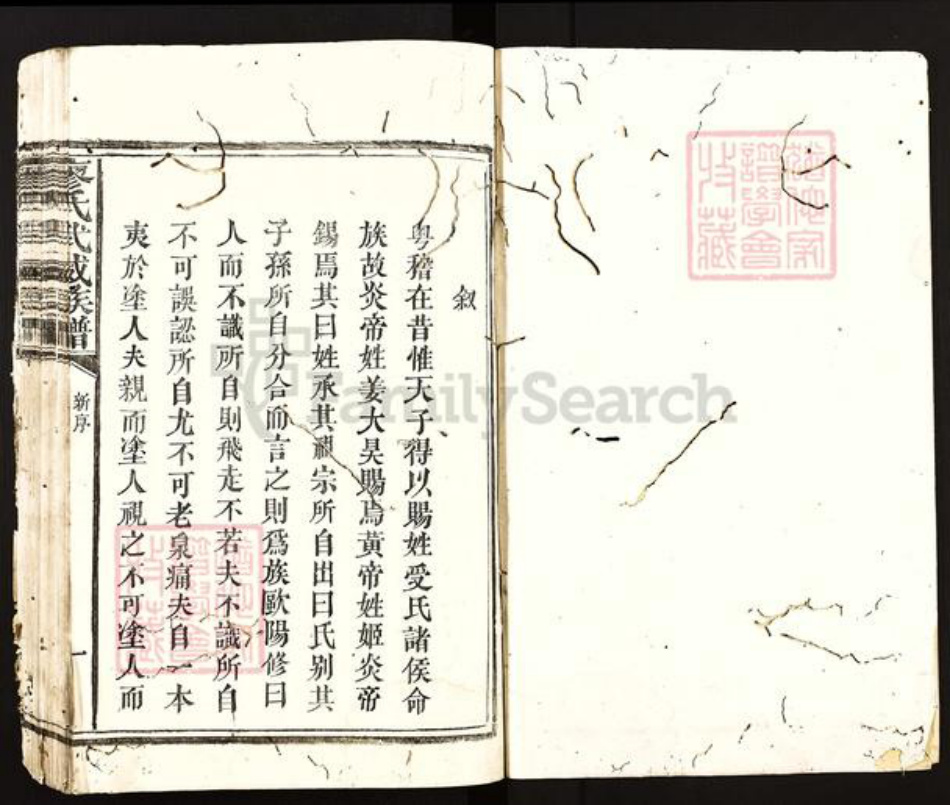 叙
粤稽在昔惟天子得以賜姓受氏諸侯命
族故炎帝姓姜大昊賜焉黄帝姓姬炎帝
錫焉其曰姓承其祖宗所自出曰氏别其
子孫所自分合而言之則爲族歐陽修曰
人而不識所自則飛走不若夫不識所自
不可誤認所自尤不可老泉痛夫自一本
夷於塗人夫親而塗人視之不可塗人而
廖氏武威族譜
新序
一
FamilySearch
譜學會
收藏